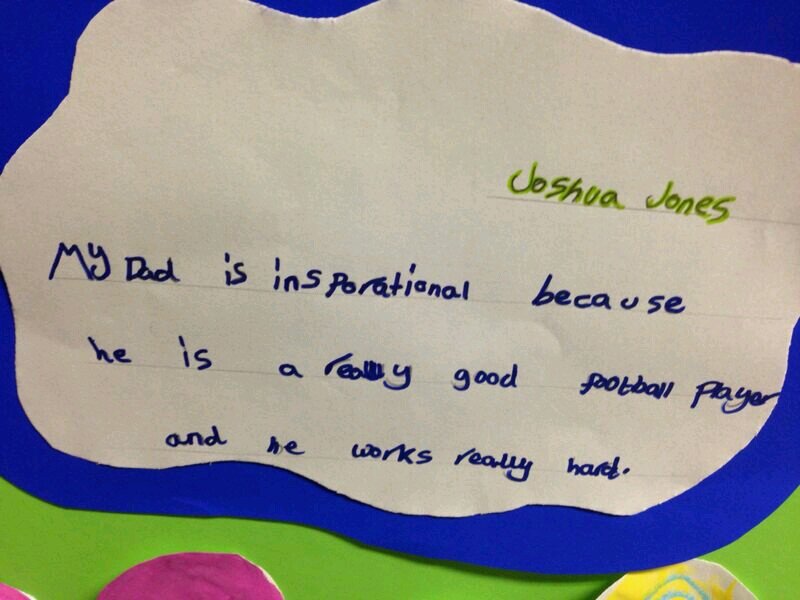 Joshua Jones
My Dad is insporational because
he is a really good football player
and he works really hard.